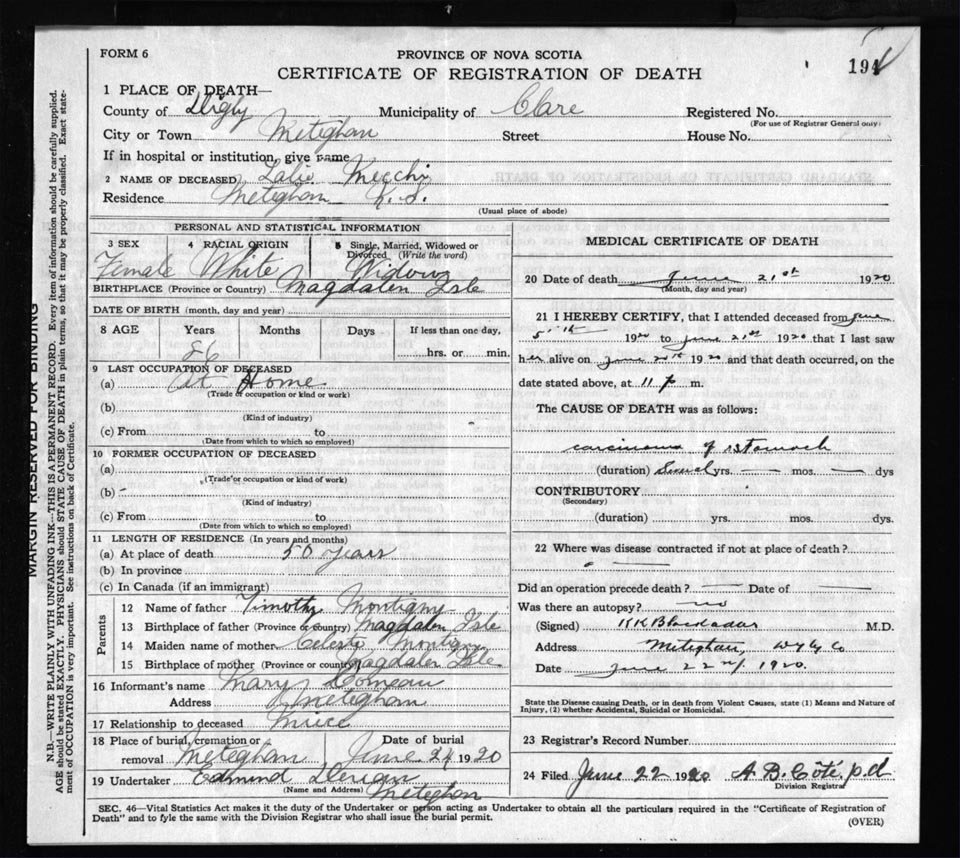 FORM 6
PROVINCE OF NOVA SCOTIA
194
CERTIFICATE OF REGISTRATION OF DEATH
1 PLACE OF DEATH—
County of Digby Municipality of Clare Registered No.
(For use of Registrar General only)
City or Town Meteghan Street House No.
If in hospital or institution, give name
2 NAME OF DECEASED Lalie
Residence Meteghan N.S.
(Usual place of abode)
PERSONAL AND STATISTICAL INFORMATION
3 SEX 4 RACIAL ORIGIN 5 Single, Married, Widowed or Divorced (Write the word)
Female White Widow
BIRTHPLACE (Province or Country) Magdalen Isle
DATE OF BIRTH (month, day and year)
8 AGE Years Months Days If less than one day,
86 hrs. or min.
9 LAST OCCUPATION OF DECEASED
(a) At Home
(Trade or occupation or kind or work)
(b)
(Kind of industry)
(c) From to
(Date from which to which so employed)
10 FORMER OCCUPATION OF DECEASED
(a)
(Trade or occupation or kind or work)
(b)
(Kind of industry)
(c) From to
(Date from which to which so employed)
11 LENGTH OF RESIDENCE (In years and months)
(a) At place of death 50 years
(b) In province
(c) In Canada (if an immigrant)
Parents
12 Name of father Timothy Montigny
13 Birthplace of father (Province or country) Magdalen Isle
14 Maiden name of mother Celeste Montigny
15 Birthplace of mother (Province or country) Magdalen Isle
16 Informant's name Mary Comeau
Address Meteghan
17 Relationship to deceased
18 Place of burial, cremation or removal Meteghan Date of burial June 24 1920
19 Undertaker Edmund
(Name and Address) Meteghan
MEDICAL CERTIFICATE OF DEATH
20 Date of death June 21st 1920
(Month, day and year)
21 I HEREBY CERTIFY, that I attended deceased from June
5th 1920 to June 21st 1920 that I last saw
her alive on June 20th 1920 and that death occurred, on the
date stated above, at 11 p m.
The CAUSE OF DEATH was as follows:
carcinoma of stomach
(duration) yrs. mos. dys
CONTRIBUTORY
(Secondary)
(duration) yrs. mos. dys.
22 Where was disease contracted if not at place of death?
Did an operation precede death? Date of
Was there an autopsy? no
(Signed) M.D.
Address Meteghan, Digby Co
Date June 22nd 1920.
State the Disease causing Death, or in death from Violent Causes, state (1) Means and Nature of
Injury, (2) whether Accidental, Suicidal or Homicidal.
23 Registrar's Record Number
24 Filed June 22 1920 A. B. Côté, p.d
Division Registrar
SEC. 46—Vital Statistics Act makes it the duty of the Undertaker or person acting as Undertaker to obtain all the particulars required in the "Certificate of Registration of
Death" and to fyle the same with the Division Registrar who shall issue the burial permit.
(OVER)
MARGIN RESERVED FOR BINDING
N.B.—WRITE PLAINLY WITH UNFADING INK—THIS IS A PERMANENT RECORD. Every item of information should be carefully supplied.
AGE should be stated EXACTLY. PHYSICIANS should STATE CAUSE OF DEATH in plain terms, so that it may be properly classified. Exact state-
ment of OCCUPATION is very important. See instructions on back of Certificate.